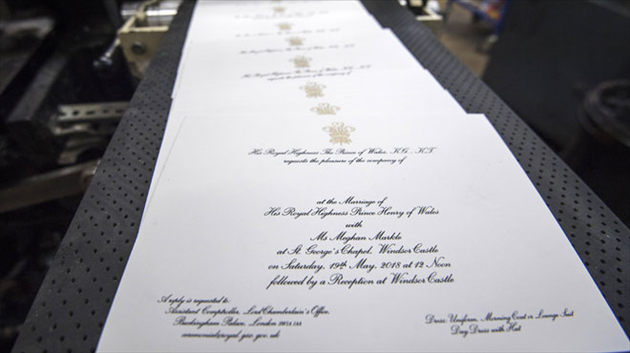 His Royal Highness The Prince of Wales, KG, KT
requests the pleasure of the company of
at the Marriage of
His Royal Highness Prince Henry of Wales
with
Ms Meghan Markle
at St. George's Chapel, Windsor Castle
on Saturday, 19th May, 2018 at 12 Noon
followed by a Reception at Windsor Castle
A reply is requested to:
Assistant Comptroller, Lord Chamberlain's Office,
Buckingham Palace, London SW1A 1AA
ceremonial@royal.gsx.gov.uk
Dress: Uniform, Morning Coat or Lounge Suit
Day Dress with Hat